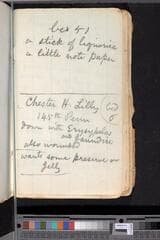 bed 51
a stick of liquorice
a little note paper
Chester H. Lilly
145th Penn
down with Erysipelas
and jaundice
also wounded
wants some preserve or
jelly